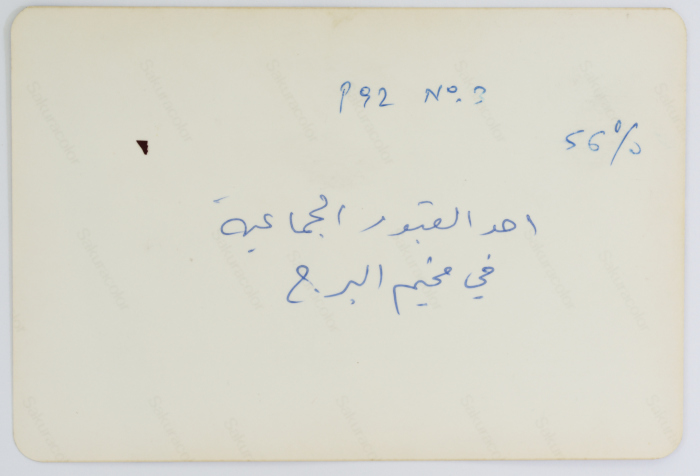 P92 No. 3
56%
احد القبور الجماعية
في مخيم البرج
Sakuracolor